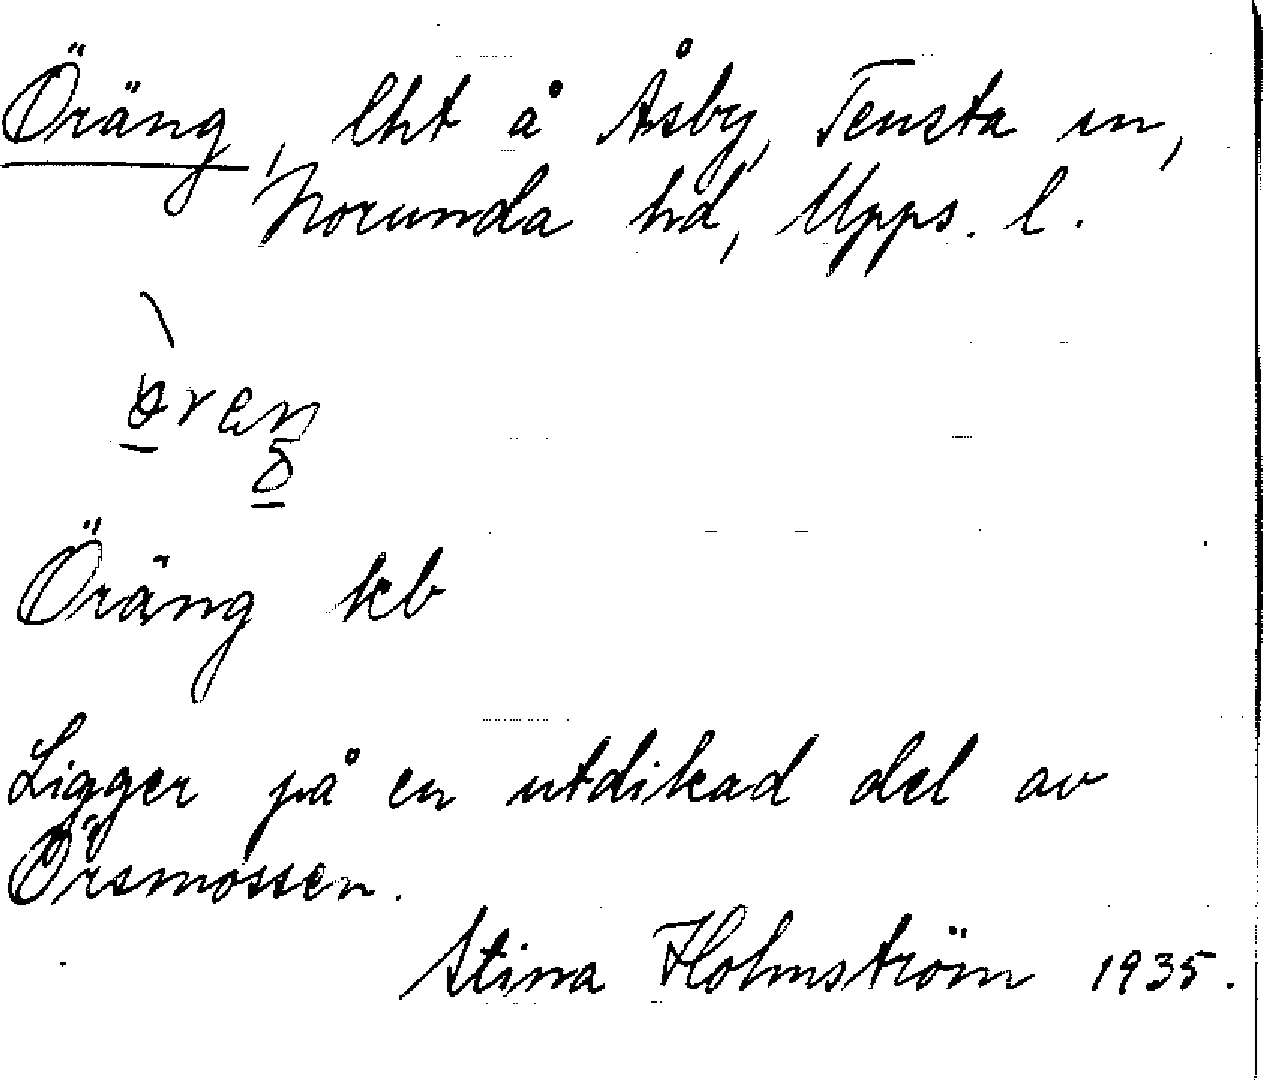 Öräng, lht å Åsby, Tensta sn,
Norunda hd, Upps. l.
Öräng kb
Ligger på en utdikad del av
Örsmossen.
Stina Holmström 1935.